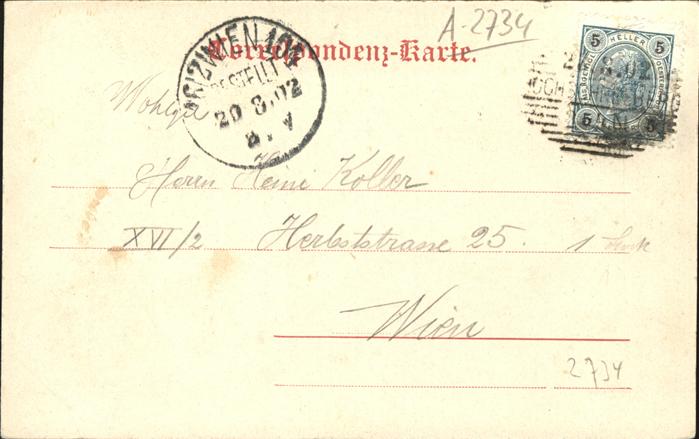 A-2734
Correspondenz-Karte.
5 HELLER 5
BESTELLT
20 8.02
8.02
5 5
Wohlgeb
Herrn Heini Koller
XVI/2 Herbststrasse 25. 1 Stock
Wien
2734